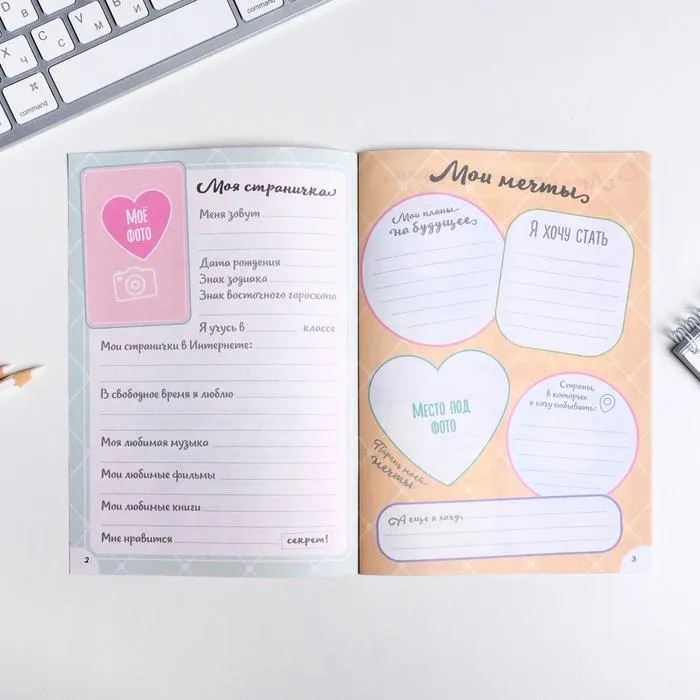 Моя страничка
МОЁ
ФОТО
Меня зовут
Дата рождения
Знак зодиака
Знак восточного гороскопа
Я учусь в классе
Мои странички в Интернете:
В свободное время я люблю
Моя любимая музыка
Мои любимые фильмы
Мои любимые книги
Мне нравится секрет!
2
Мои мечты
Мои планы
на будущее
Я ХОЧУ СТАТЬ
МЕСТО ПОД
ФОТО
Парень моей
мечты
Страны,
в которых
я хочу побывать:
А еще я хочу
3
command
command